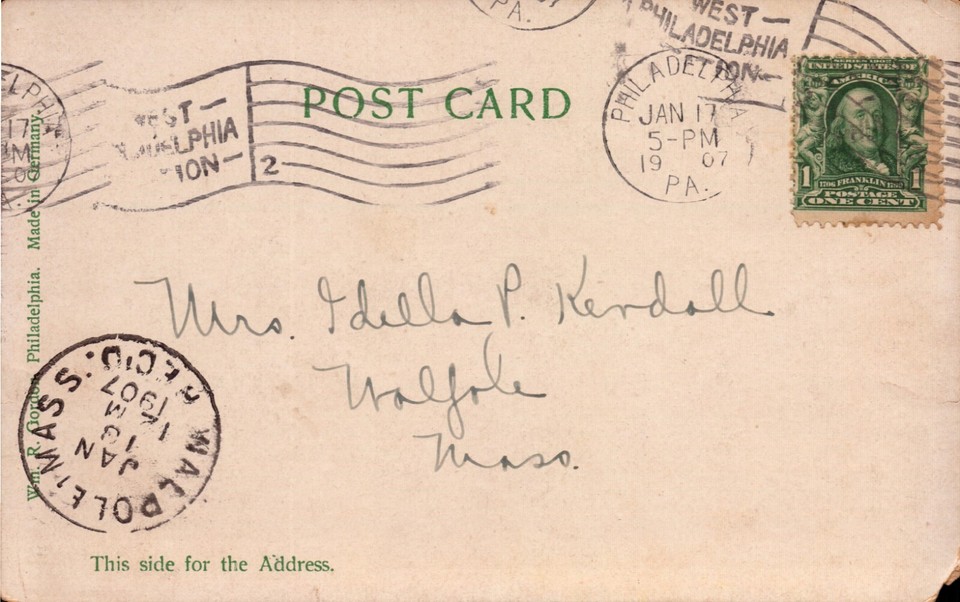 PA.
WEST
PHILADELPHIA
TION
POST CARD
PHILADELPHIA
JAN 17
5-PM
19 07
PA.
SERIES 1902
UNITED STATES OF
AMERICA
1 1706 FRANKLIN 1790 1
POSTAGE
ONE CENT
17
2
Mrs. Idella P. Kendall
Walpole
Mass.
WALPOLE, MASS. REC'D.
JAN
1907
Wm. R. Gordon, Philadelphia. Made in Germany.
This side for the Address.